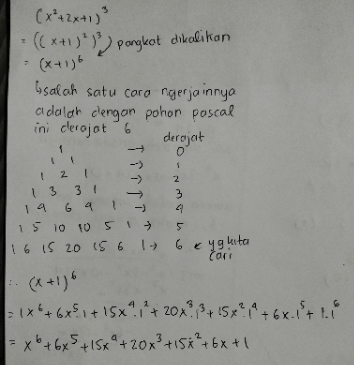 (x²+2x+1)³
= ((x+1)²)³) pangkat dikalikan
= (x+1)⁶
↳ salah satu cara ngerjainnya
adalah dengan pohon pascal
ini derajat 6
derajat
1 → 0
1 1 → 1
1 2 1 → 2
1 3 3 1 → 3
1 4 6 4 1 → 4
1 5 10 10 5 1 → 5
1 6 15 20 15 6 1 → 6 ← yg kita
cari
∴ (x+1)⁶
= 1x⁶+6x⁵.1+15x⁴.1²+20x³.1³+15x².1⁴+6x.1⁵+1.1⁶
= x⁶+6x⁵+15x⁴+20x³+15x²+6x+1